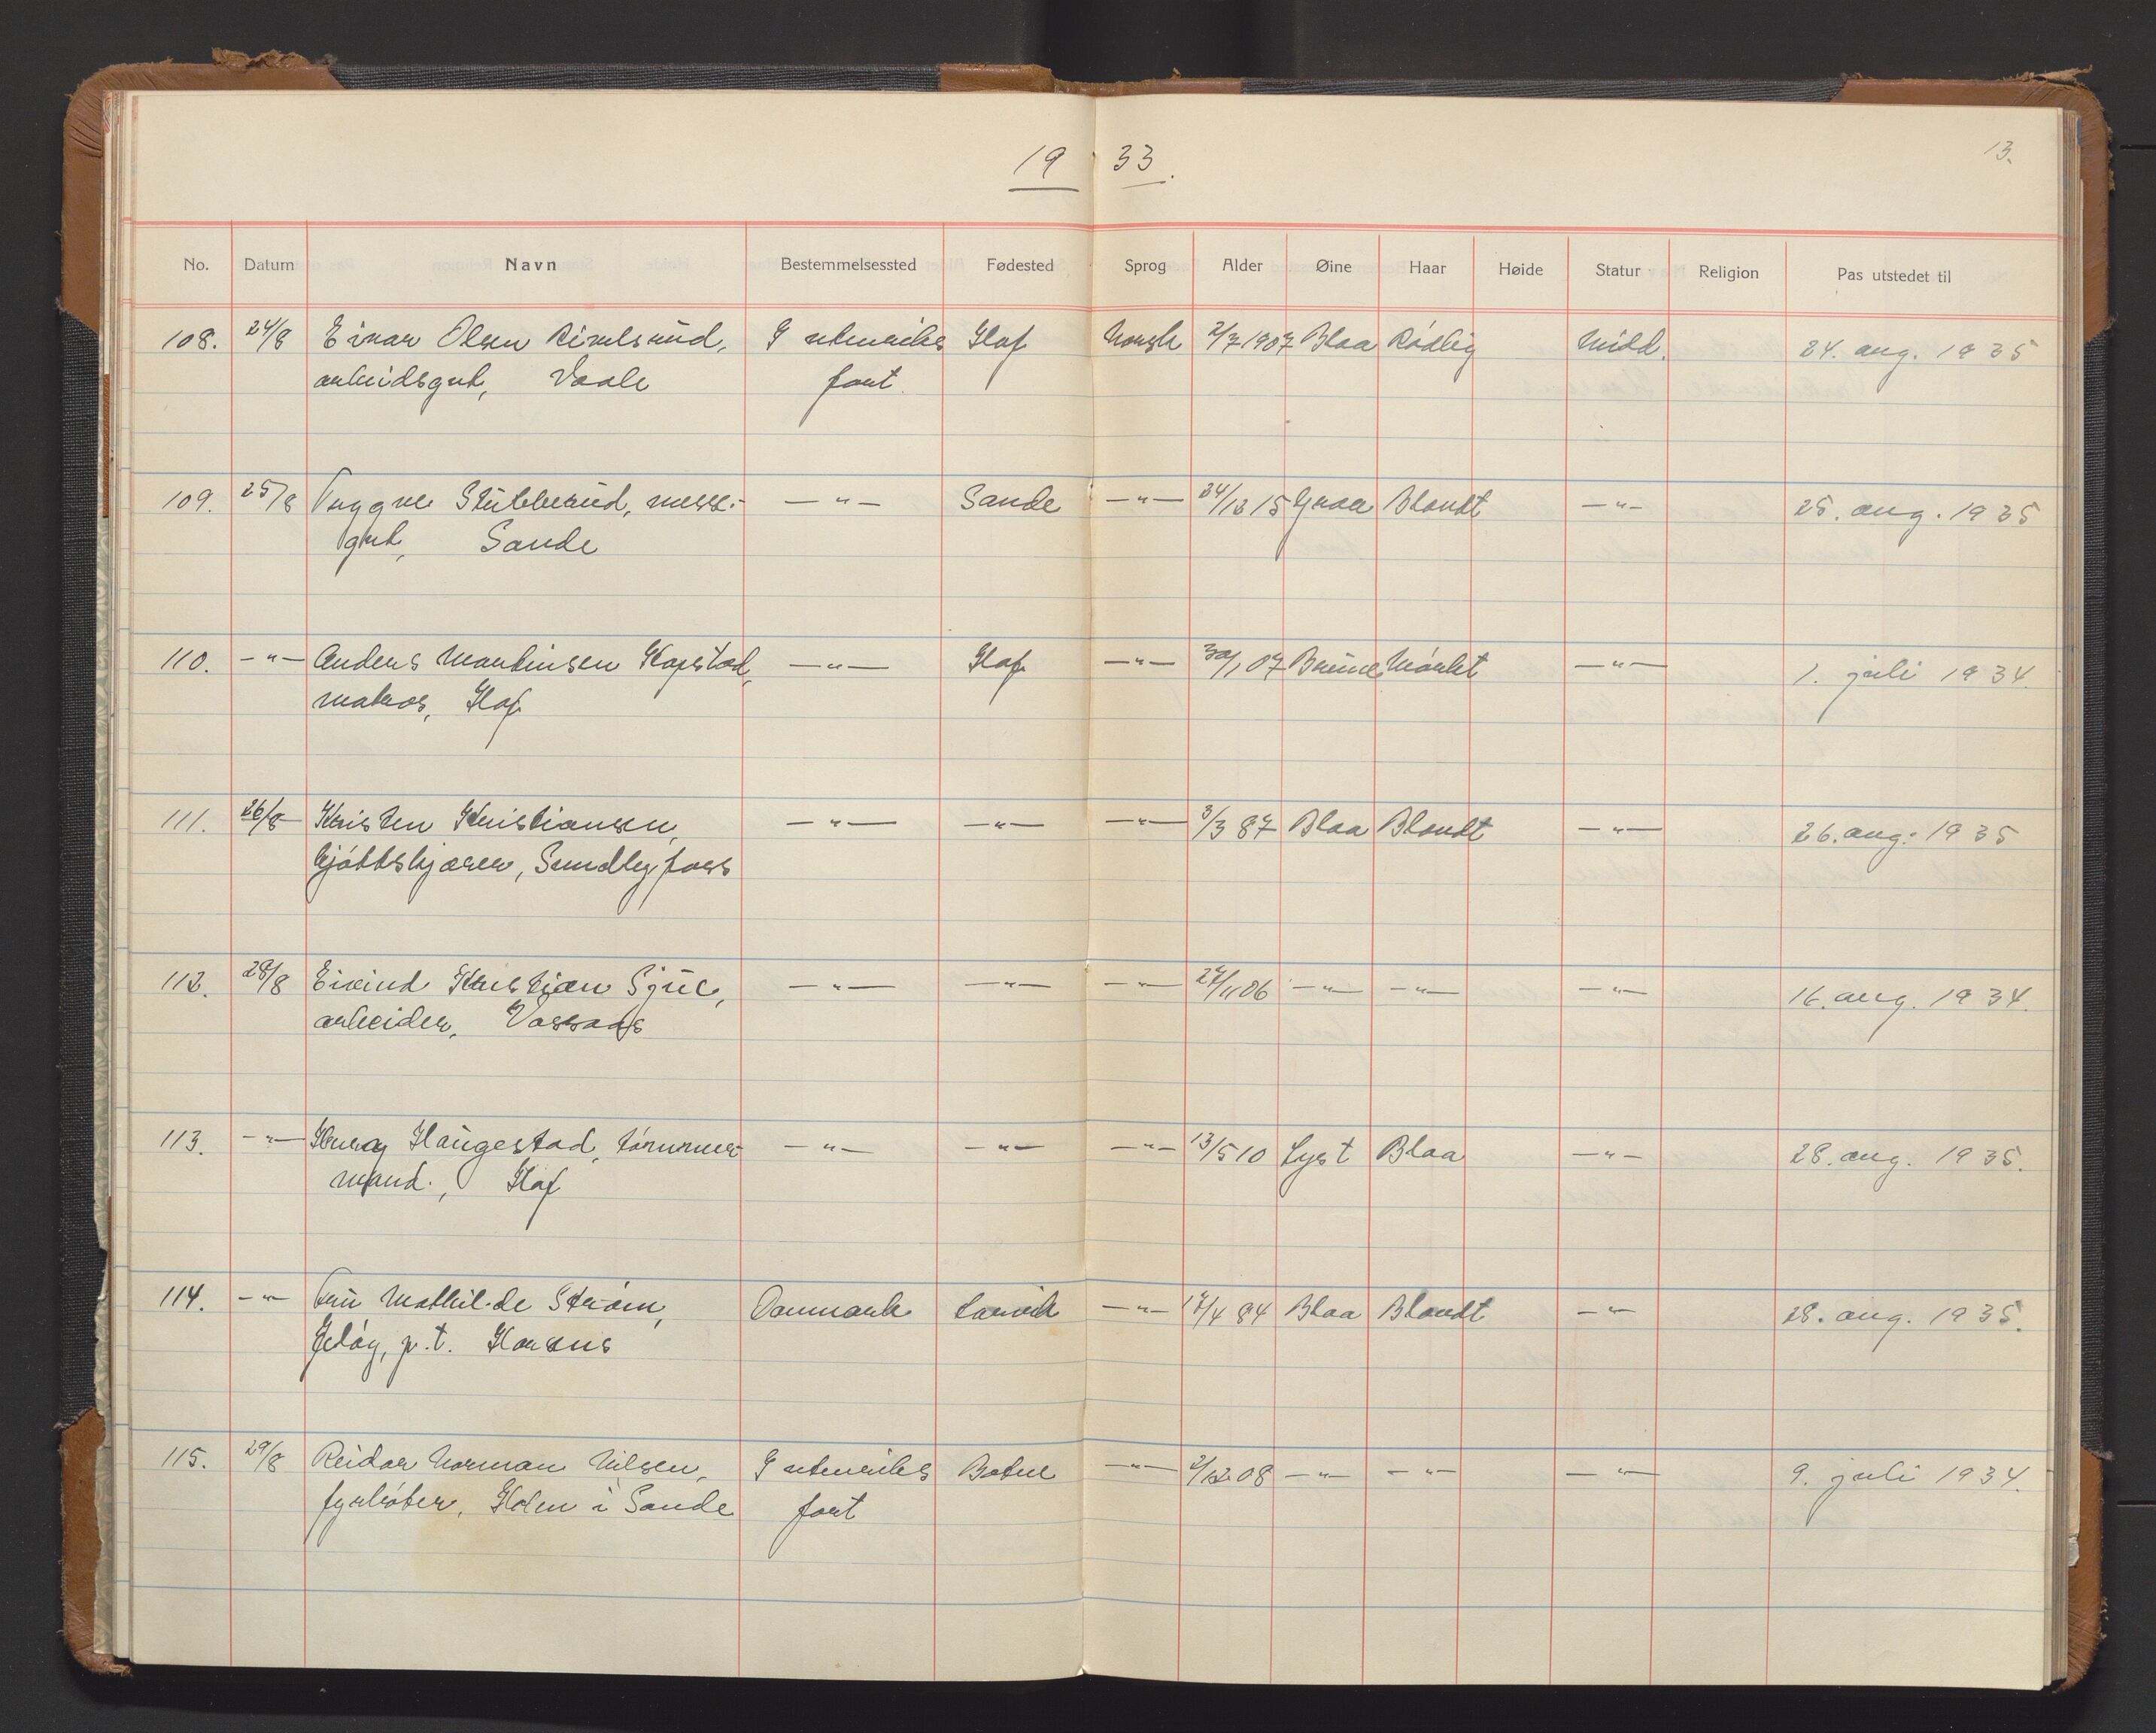 19 33.
13.
No. Datum Navn Bestemmelsessted Fødested Sprog Alder Øine Haar Høide Statur Religion Pas utstedet til
108. 24/8 Einar Olsen I utenriks Hof Norsk 2/7 1907 Blaa Rødlig Midd. 24. aug. 1935
arbeidsgut, Vaale fart
109. 25/8 Trygve Stubberud, messe- —"— Sande —"— 24/12 15 Graa Blondt —"— 25. aug. 1935
gut, Sande
110. —"— Anders Martinsen Hapstad, —"— Hof —"— 30/1 07 Brune Mørkt —"— 1. juli 1934.
matros, Hof
111. 26/8 Kristen Kristiansen, —"— —"— —"— 3/3 87 Blaa Blondt —"— 26. aug. 1935
kjøttskjærer, Sundbyfoss
112. 28/8 Eivind Kristian Sjue, —"— —"— —"— 27/11 06 —"— —"— —"— 16. aug. 1934.
arbeider, Vassaas
113. —"— Haugestad, tømmer- —"— —"— —"— 13/5 10 Lyst Blaa —"— 28. aug. 1935.
mand., Hof
114. —"— Fru Mathilde Strøm, Danmark Larvik —"— 17/4 84 Blaa Blondt —"— 28. aug. 1935.
Jeløy, p.t. Horsens
115. 29/8 Reidar Norman Nilsen, I utenriks Botne —"— 2/12 08 —"— —"— —"— 9. juli 1934.
fyrbøter, Holm i Sande fart